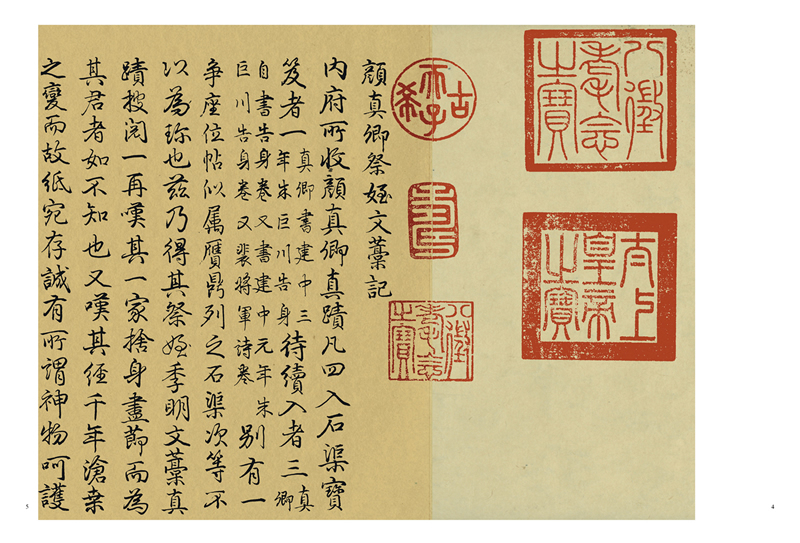 八徵耄念之寶
太上皇帝之寶
古希天子
壽
八徵耄念之寶
顏真卿祭姪文藁記
內府所收顏真卿真蹟凡四入石渠寶
笈者一真卿書建中三年朱巨川告身待續入者三真卿
自書告身卷又書建中元年朱巨川告身卷又裴將軍詩卷別有一
爭座位帖似属贗鼎列之石渠次等不
以為珍也茲乃得其祭姪季明文藁真
蹟搜閱一再嘆其一家捨身盡節而為
其君者如不知也又嘆其經千年滄桑
之變而故紙宛存誠有所謂神物呵護
4
5